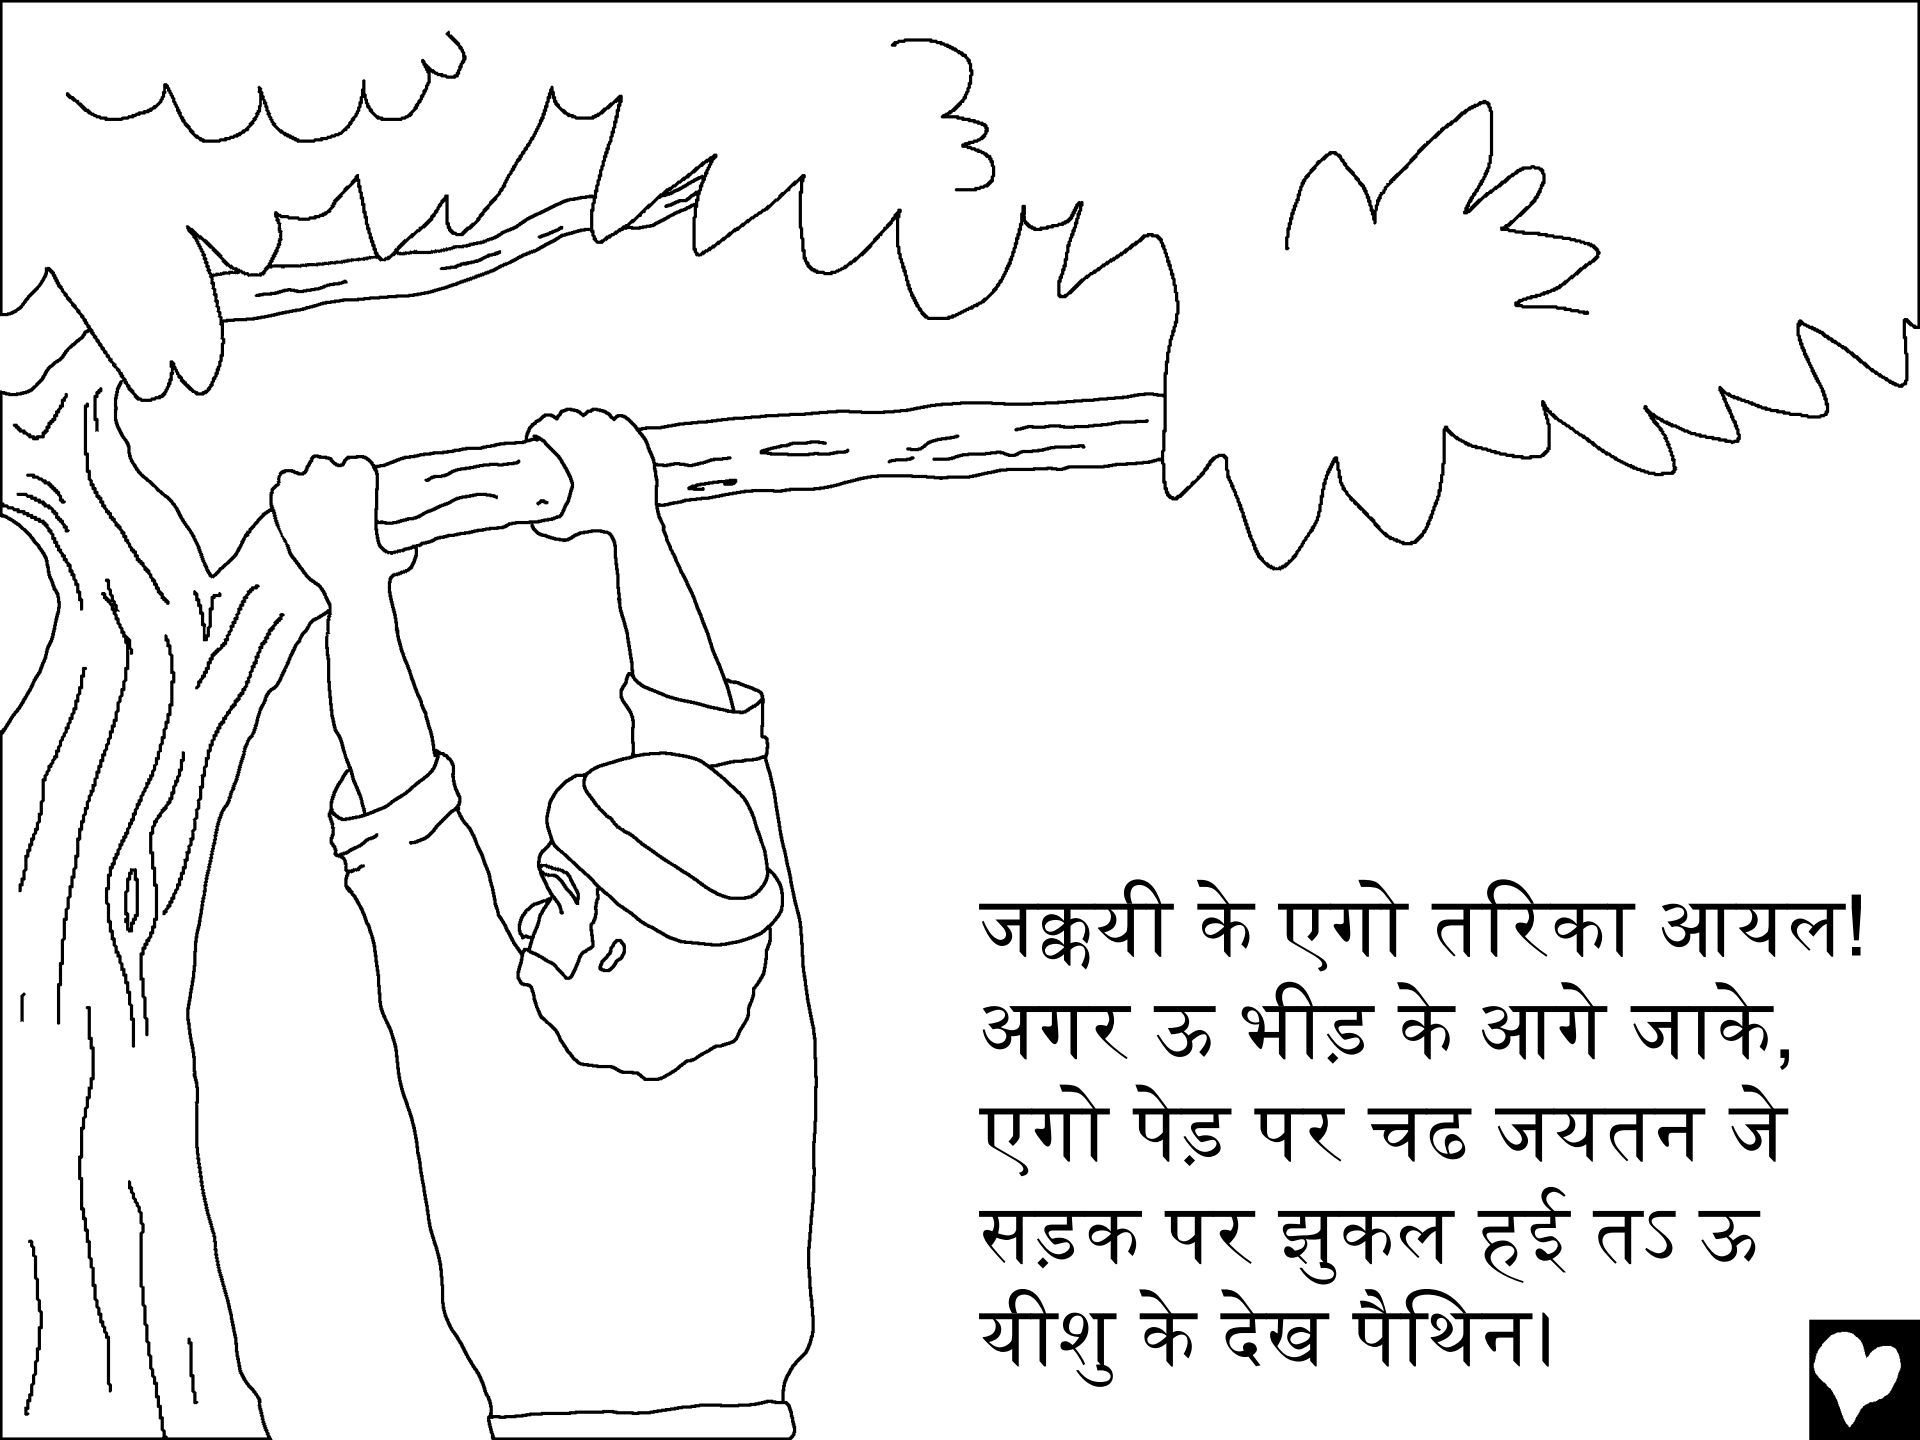 जक्कयी के एगो तरिका आयल!
अगर ऊ भीड़ के आगे जाके,
एगो पेड़ पर चढ जयतन जे
सड़क पर झुकल हई तऽ ऊ
यीशु के देख पैथिन।